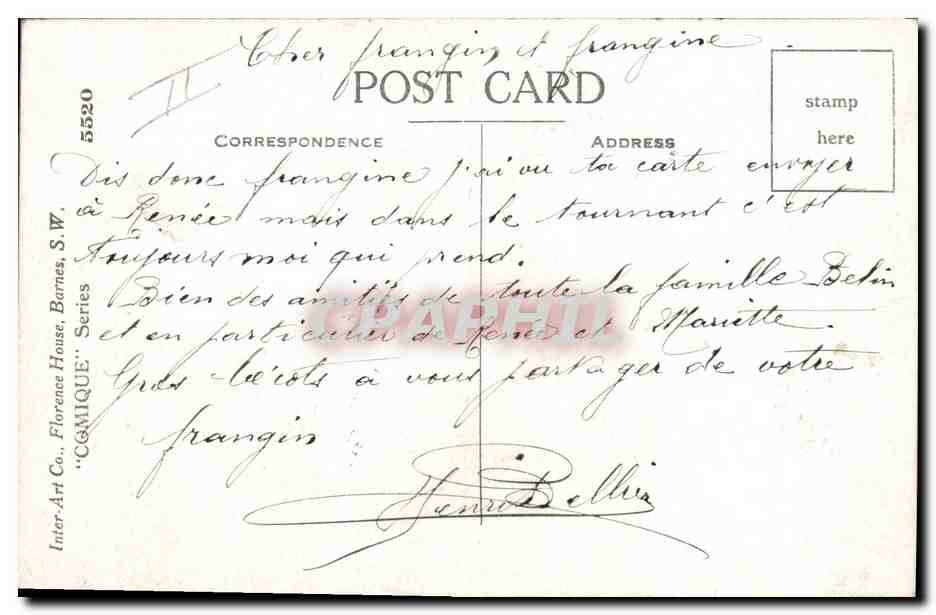 Cher frangin et frangine
II
POST CARD
stamp
here
CORRESPONDENCE
ADDRESS
Dis donc frangine j'ai vu ta carte envoyer
à Renée mais dans le tournant c'est
Toujours moi qui prend.
Bien des amitiés de toute la famille Belin
et en particulier de Renée et Mariette.
Gros bécots à vous partager de votre
frangin
Henri Bellier
CPAPHIL
Inter-Art Co., Florence House, Barnes, S.W.
"COMIQUE" Series 5520